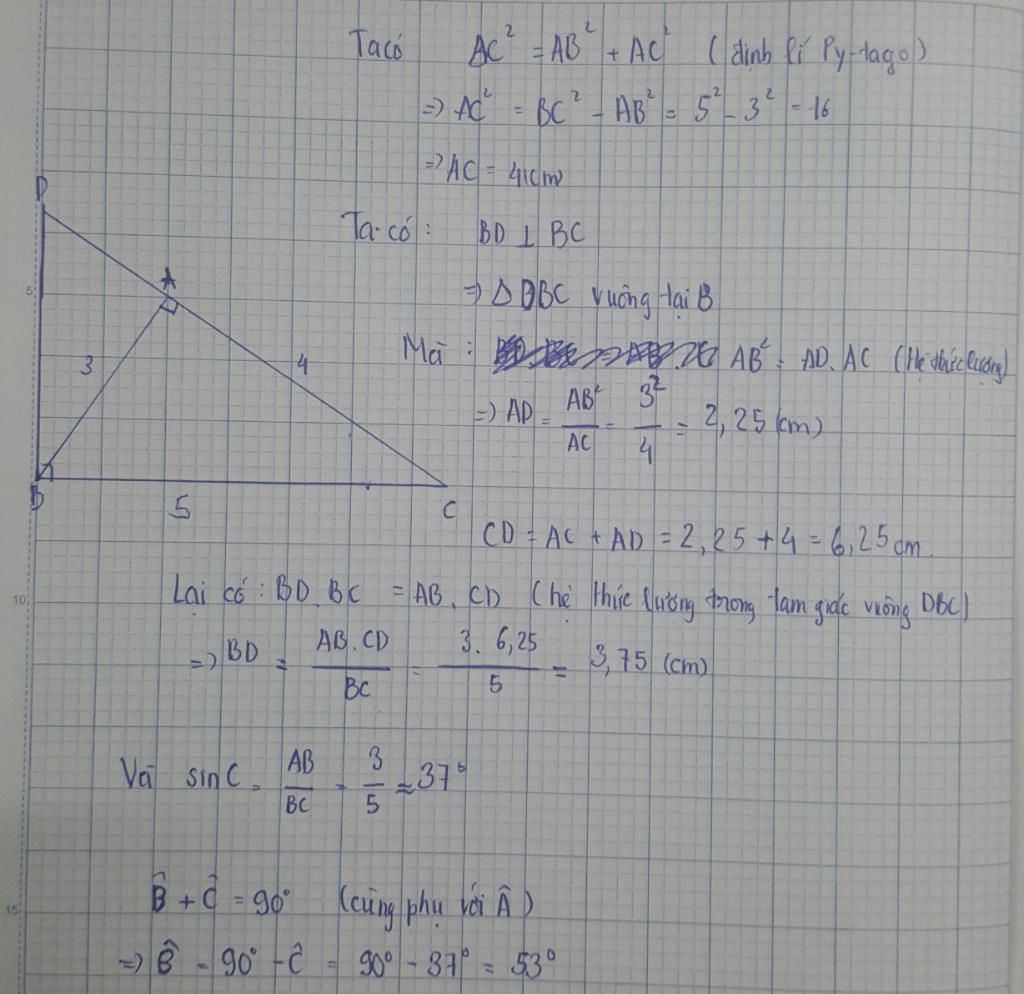 Ta có AC² = AB² + AC² (định lí Py-tago)
=> AC² = BC² - AB² = 5² - 3² = 16
=> AC = 4(cm)
Ta có: BD ⊥ BC
=> ΔDBC vuông tại B
Mà: AB² = AD.AC (Hệ thức lượng)
=> AD = AB²/AC = 3²/4 = 2,25 (cm)
D
A
3
4
B
5
C
CD = AC + AD = 2,25 + 4 = 6,25 cm.
Lại có: BD.BC = AB.CD (hệ thức lương trong tam giác vuông DBC)
=> BD = AB.CD/BC = 3.6,25/5 = 3,75 (cm)
Và sinC = AB/BC = 3/5 ≈ 37°
B̂ + Ĉ = 90° (cùng phụ với Â)
=> B̂ = 90° - Ĉ = 90° - 37° = 53°
5
10
15